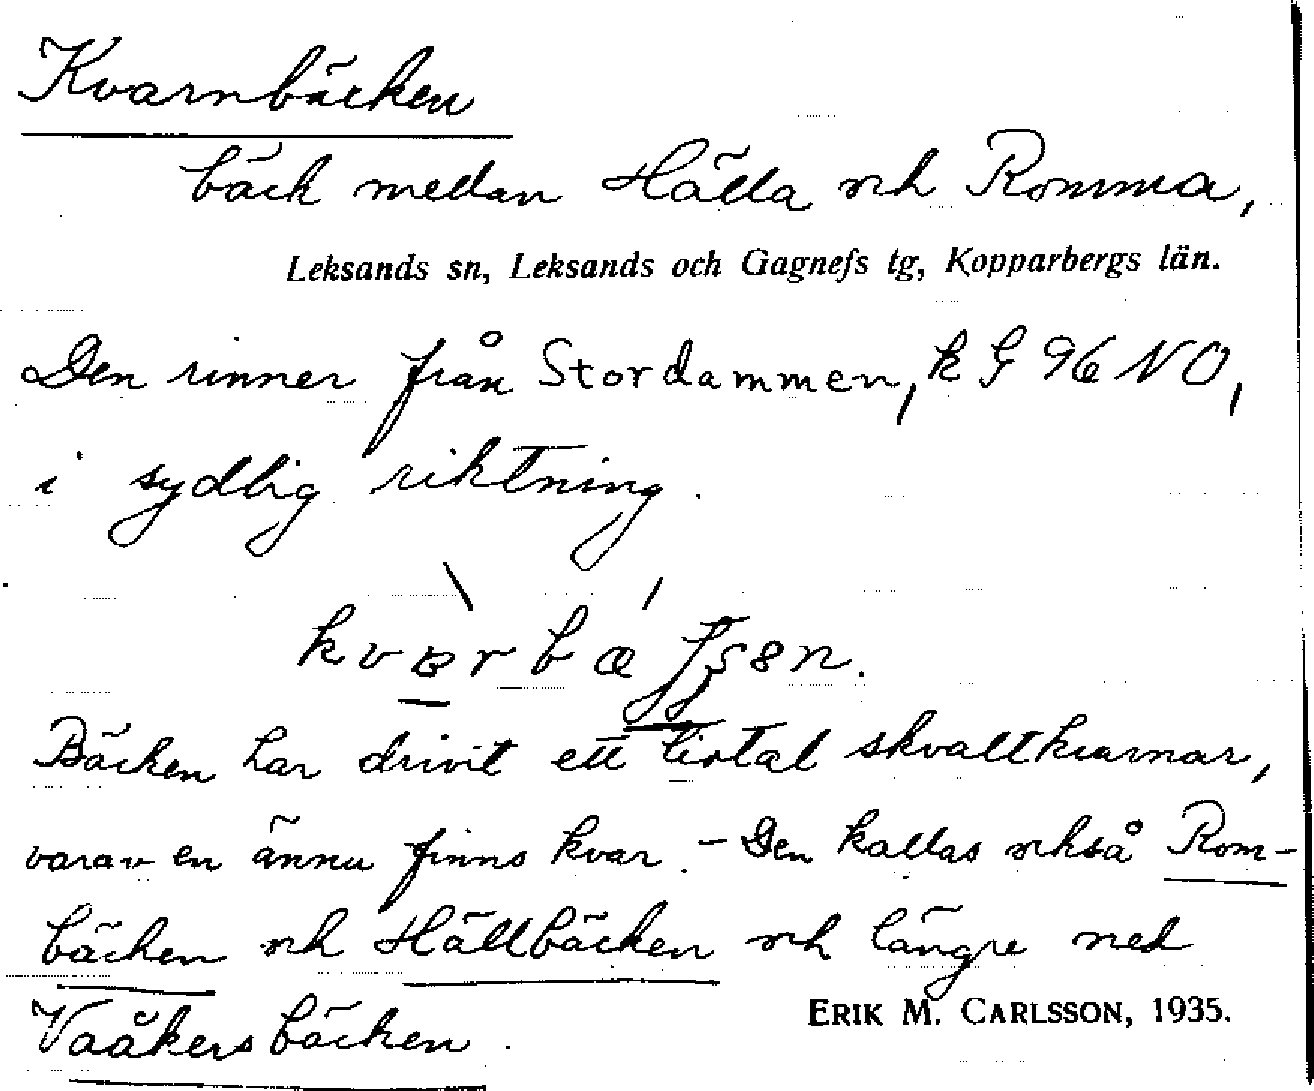 Kvarnbäcken
bäck mellan Hälla och Romma,
Leksands sn, Leksands och Gagnefs tg, Kopparbergs län.
Den rinner från Stordammen, k G 96 NO,
i sydlig riktning.
Bäcken har drivit ett tiotal skvaltkvarnar,
varav en ännu finns kvar. - Den kallas också Rom-
bäcken och Hällbäcken och längre ned
Vaåkersbäcken.
ERIK M. CARLSSON, 1935.